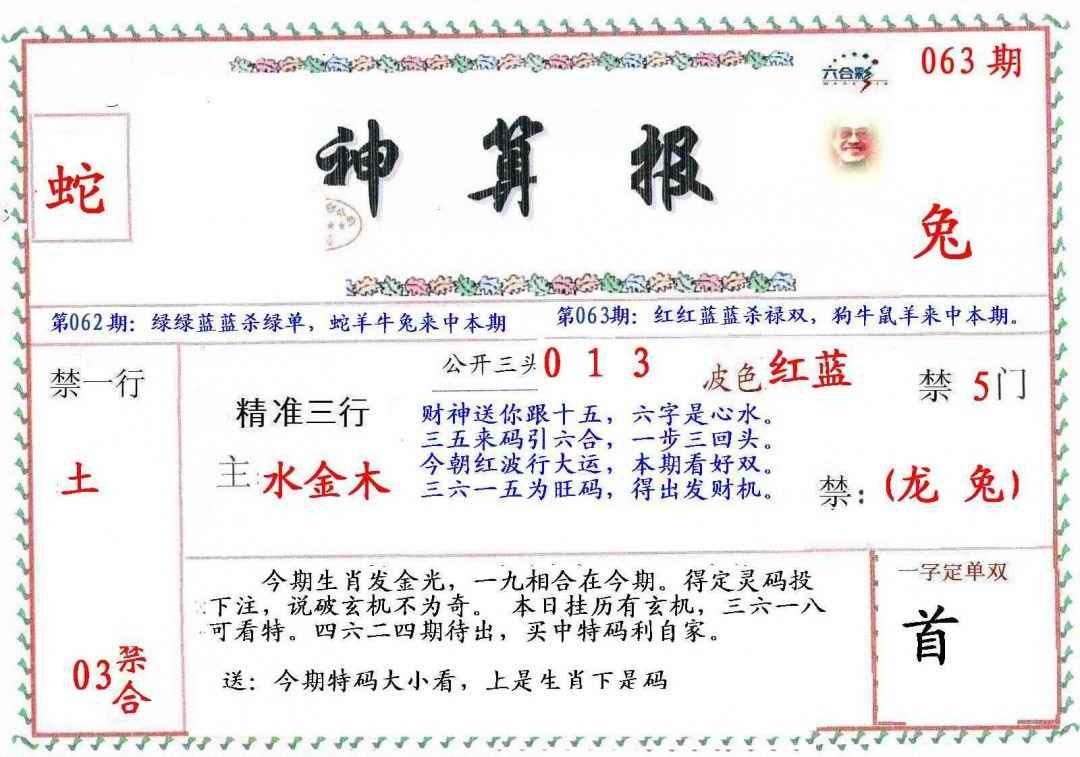 六合彩
063期
神算报
蛇
兔
第062期：绿绿蓝蓝杀绿单，蛇羊牛兔来中本期
第063期：红红蓝蓝杀禄双，狗牛鼠羊来中本期。
禁一行
土
03禁合
公开三头013
波色红蓝
精准三行
主:水金木
财神送你跟十五，六字是心水。
三五来码引六合，一步三回头。
今朝红波行大运，本期看好双。
三六一五为旺码，得出发财机。
禁5门
禁：(龙 兔)
今期生肖发金光，一九相合在今期。得定灵码投
下注，说破玄机不为奇。 本日挂历有玄机，三六一八
可看特。四六二四期待出，买中特码利自家。
送：今期特码大小看，上是生肖下是码
一字定单双
首